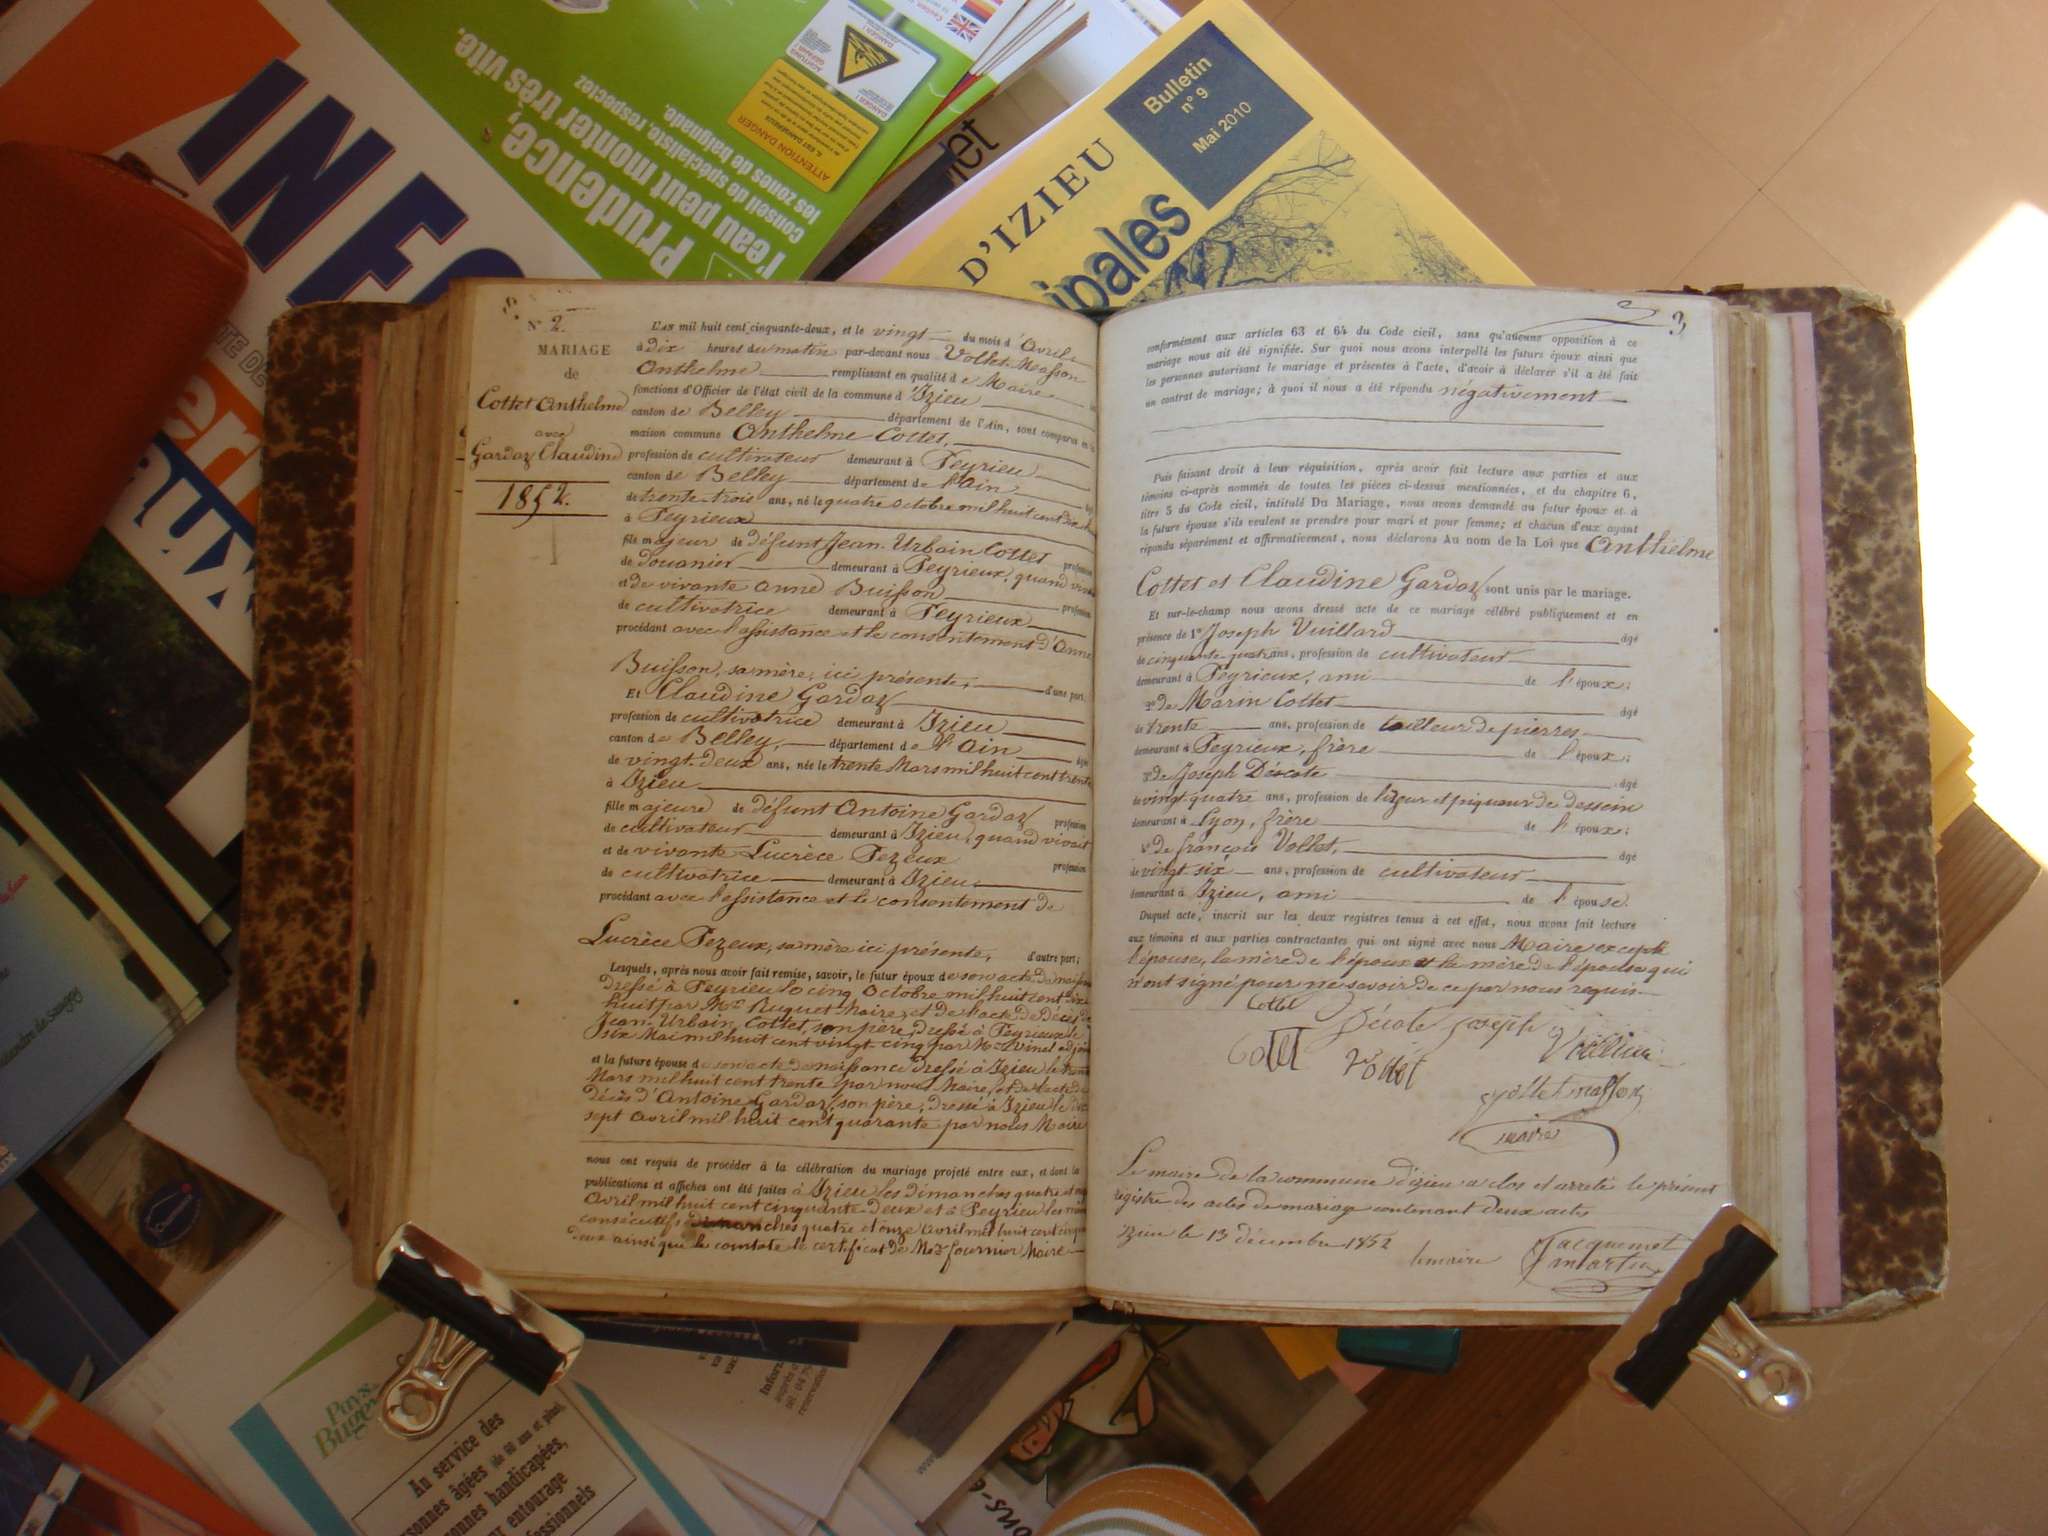 INFO
Prudence,
l'eau peut monter très vite.
Conseil de spécialiste, respectez
les zones de baignade.
ATTENTION DANGER
Bulletin
n° 9
Mai 2010
D'IZIEU
ipales
N° 2.
MARIAGE
de
Cottet Anthelme
avec
Gardaz Claudine
1852.
L'AN mil huit cent cinquante-deux, et le vingt du mois d'Avril
à dix heures du matin par-devant nous Vollet-Masson
Anthelme remplissant en qualité de Maire
fonctions d'Officier de l'état civil de la commune d'Izieu
canton de Belley département de l'Ain, sont comparus en la
maison commune Anthelme Cottet,
profession de cultivateur demeurant à Peyrieu
canton de Belley département de l'Ain
de trente-trois ans, né le quatre octobre mil huit cent dix
à Peyrieux
fils majeur de défunt Jean-Urbain Cottet profession
de douanier demeurant à Peyrieux, quand vivait
et de vivante anne Buisson profession
de cultivatrice demeurant à Peyrieux
procédant avec l'assistance et le consentement d'Anne
Buisson, sa mère, ici présente, d'une part.
Et Claudine Gardaz
profession de cultivatrice demeurant à Izieu
canton de Belley, département de l'Ain
de vingt-deux ans, née le trente Mars mil huit cent trente
à Izieu
fille majeure de défunt Antoine Gardaz profession
de cultivateur demeurant à Izieu, quand vivait
et de vivante Lucrèce Pezeux profession
de cultivatrice demeurant à Izieu,
procédant avec l'assistance et le consentement de
Lucrèce Pezeux, sa mère ici présente, d'autre part;
Lesquels, après nous avoir fait remise, savoir, le futur époux de son acte de naissance
dressé à Peyrieu le cinq Octobre mil huit cent dix
huit par Mr Ruguet Maire, et de l'acte de Décès de
Jean-Urbain Cottet, son père, dressé à Peyrieux le
six Mai mil huit cent vingt-cinq par Mr Vinet adjoint
et la future épouse de son acte de naissance dressé à Izieu le trente
Mars mil huit cent trente par nous Maire, et de l'acte de
décès d'Antoine Gardaz, son père, dressé à Izieu le
sept Avril mil huit cent quarante par nous Maire
nous ont requis de procéder à la célébration du mariage projeté entre eux, et dont la
publications et affiches ont été faites à Izieu les dimanches quatre et onze
Avril mil huit cent cinquante deux et à Peyrieu les mêmes
consécutifs dimanches quatre et onze avril mil huit cent cinquante
deux ainsi que le constate le certificat de Mr fournier Maire
3
conformément aux articles 63 et 64 du Code civil, sans qu'aucune opposition à ce
mariage nous ait été signifiée. Sur quoi nous avons interpellé les futurs époux ainsi que
les personnes autorisant le mariage et présentes à l'acte, d'avoir à déclarer s'il a été fait
un contrat de mariage; à quoi il nous a été répondu négativement
Puis faisant droit à leur réquisition, après avoir fait lecture aux parties et aux
témoins ci-après nommés de toutes les pièces ci-dessus mentionnées, et du chapitre 6,
titre 5 du Code civil, intitulé Du Mariage, nous avons demandé au futur époux et à
la future épouse s'ils veulent se prendre pour mari et pour femme; et chacun d'eux ayant
répondu séparément et affirmativement, nous déclarons Au nom de la Loi que Anthelme
Cottet et Claudine Gardaz sont unis par le mariage.
Et sur-le-champ nous avons dressé acte de ce mariage célébré publiquement et en
présence de 1° Joseph Vuillard âgé
de cinquante-quatre ans, profession de cultivateur
demeurant à Peyrieux, ami de l'époux;
2° de Marin Cottet âgé
de trente ans, profession de tailleur de pierres
demeurant à Peyrieux, frère de l'époux;
3° de Joseph Décote âgé
de vingt quatre ans, profession de lizeur et piqueur de dessein
demeurant à Lyon, frère de l'époux;
4° de françois Vollet, âgé
de vingt six ans, profession de cultivateur
demeurant à Izieu, ami de l'épouse.
Duquel acte, inscrit sur les deux registres tenus à cet effet, nous avons fait lecture
aux témoins et aux parties contractantes qui ont signé avec nous Maire excepté
l'épouse, la mère de l'époux et la mère de l'épouse qui
n'ont signé pour ne savoir de ce par nous requis
Cottet
Décote Joseph
Cotet Vollet
vollet masson
maire
Le maire de la commune d'izieu a clos et arreté le présent
registre des actes de mariage contenant deux actes
izieu le 13 décembre 1852
le maire Jacquemet
martin
Pays
Bugey
An service des
personnes âgées (de 60 ans et plus),
handicapées,
entourage